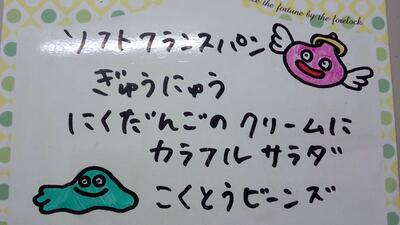 the fortune by the forelock.
ソフトフランスパン
ぎゅうにゅう
にくだんごのクリームに
カラフルサラダ
こくとうビーンズ